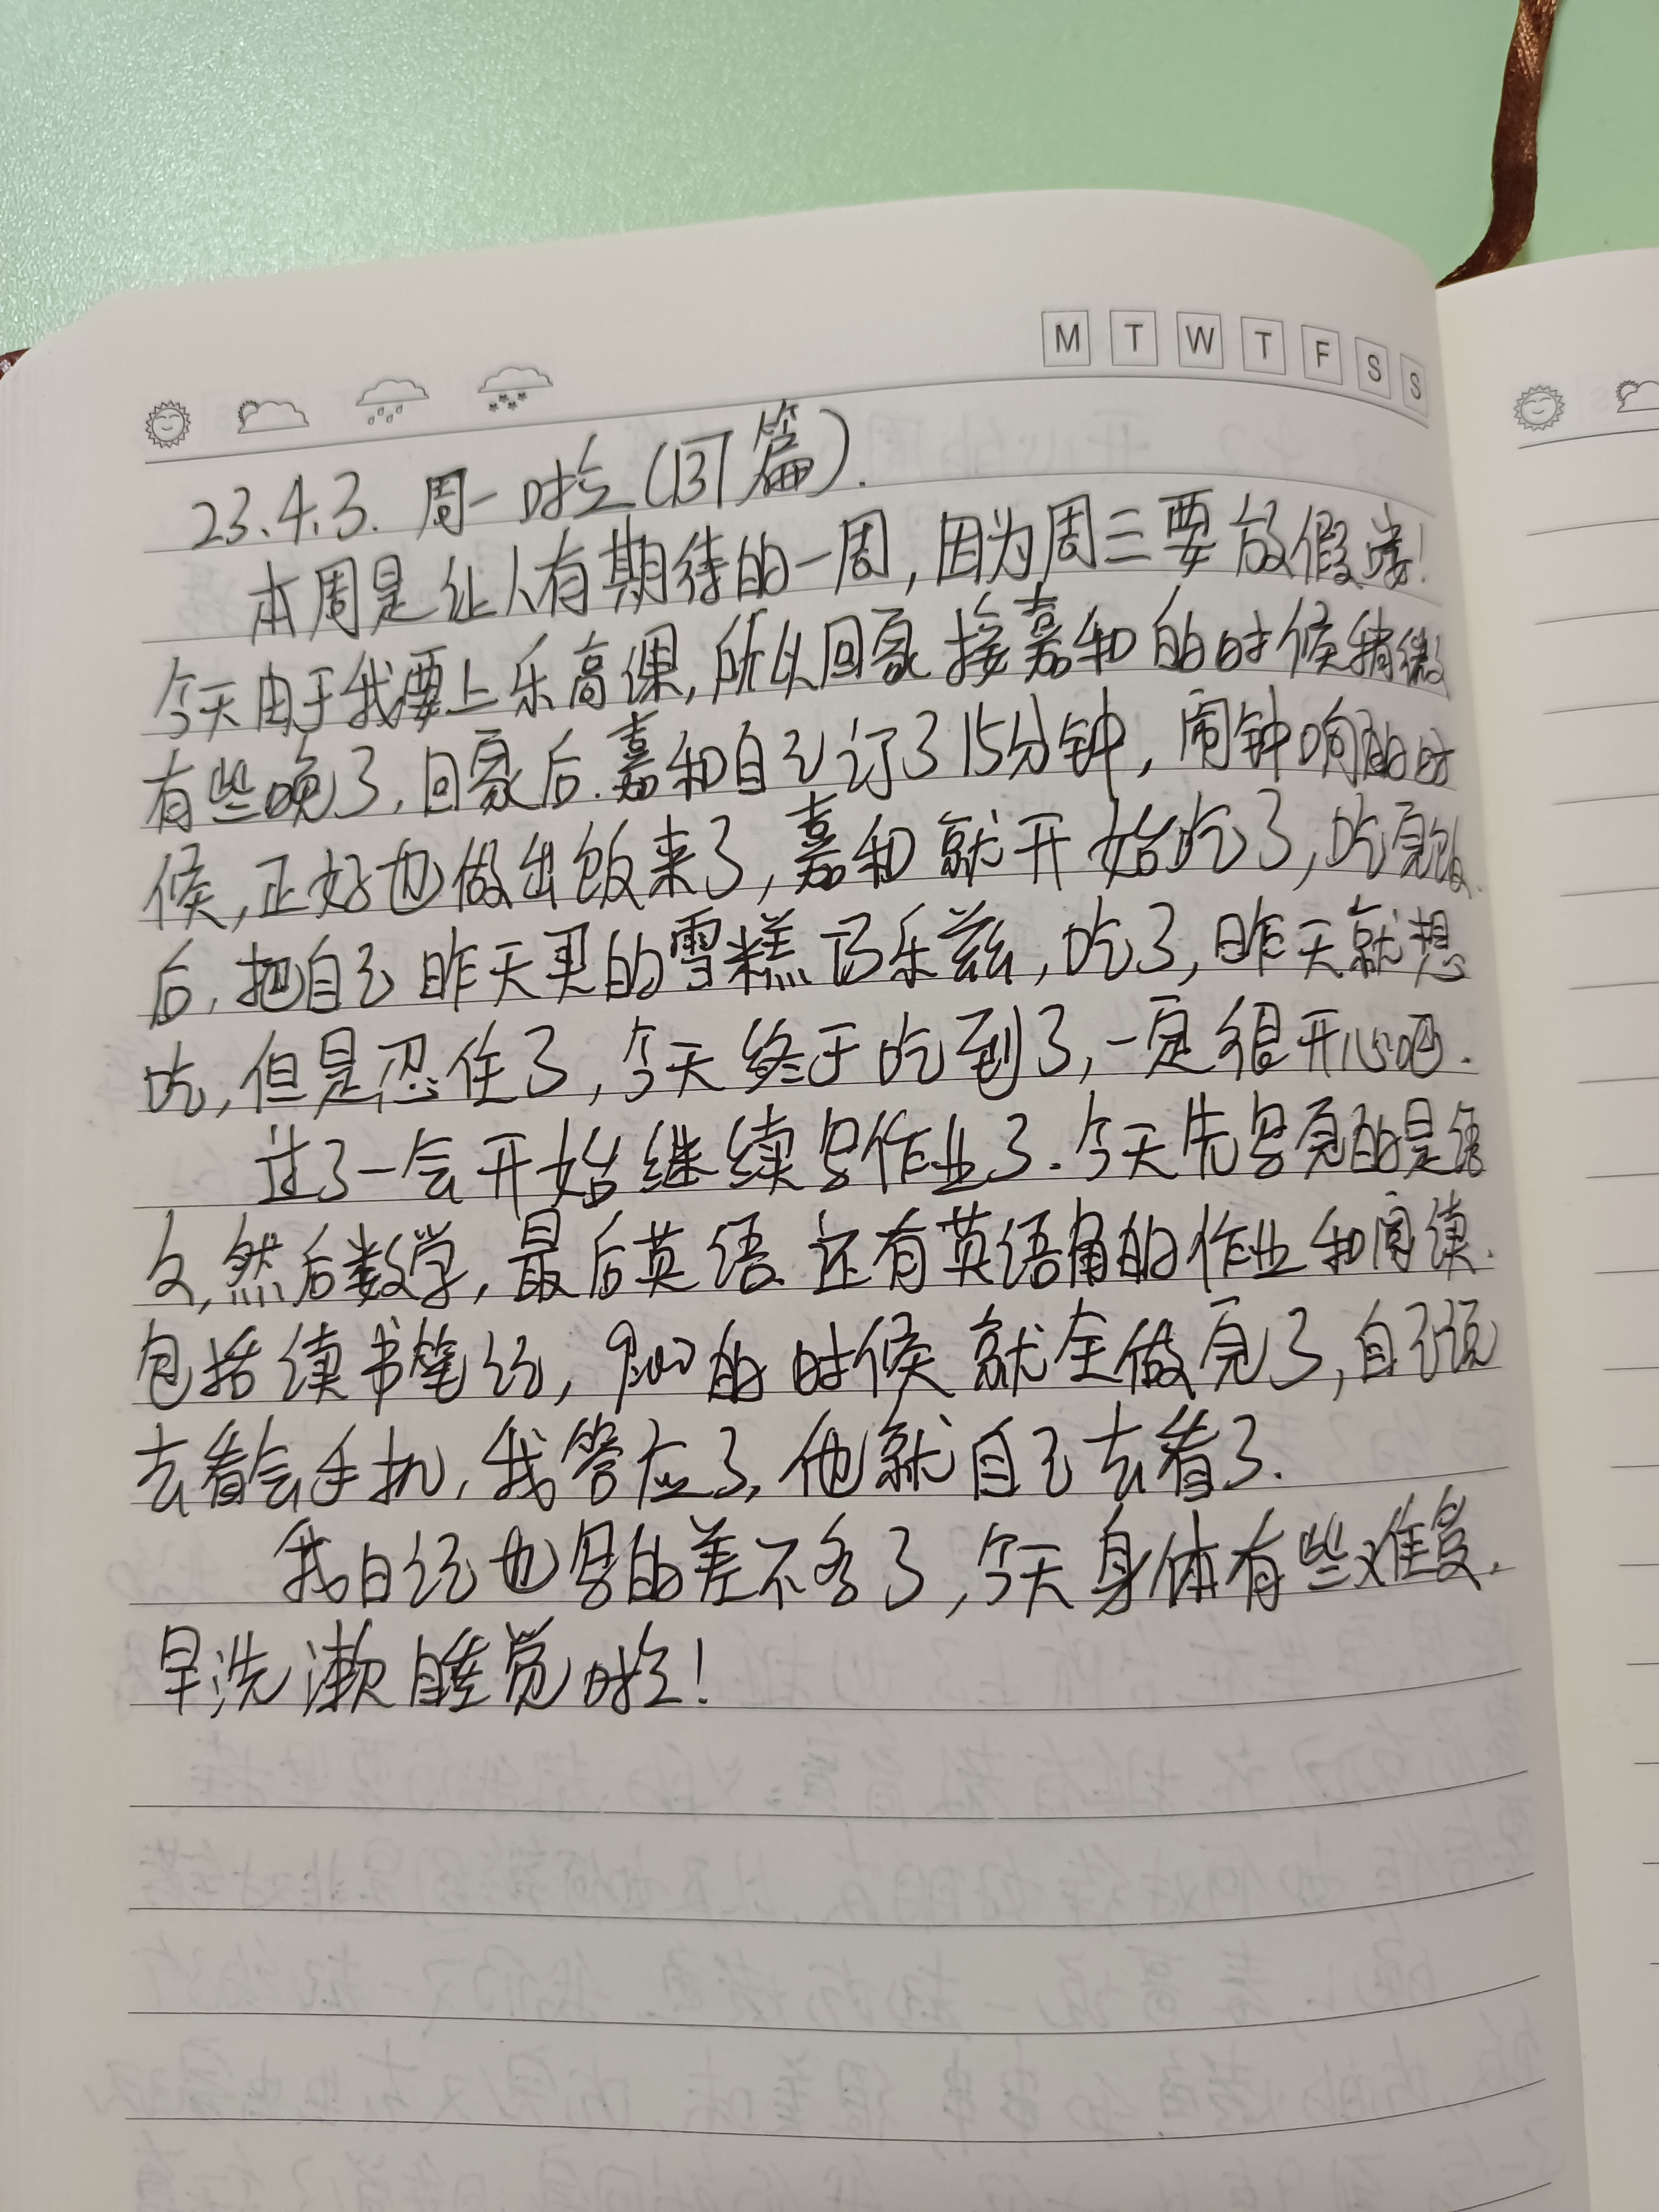 M T W T F S S
23.4.3. 周一啦(137篇).
本周是让人有期待的一周,因为周三要放假喽!
今天由于我要上乐高课,所以回家接嘉和的时候稍微
有些晚了,回家后.嘉和自己订了15分钟,闹钟响的时
候,正好也做出饭来了,嘉和就开始吃了,吃完饭
后,把自己昨天买的雪糕巧乐兹,吃了,昨天就想
吃,但是忍住了,今天终于吃到了,一定很开心吧.
过了一会开始继续写作业了.今天先写完的是语
文,然后数学,最后英语.还有英语角的作业和阅读.
包括读书笔记,9:00的时候就全做完了,自己说
去看会手机,我答应了,他就自己去看了.
我日记也写的差不多了,今天身体有些难受.
早洗漱睡觉啦!